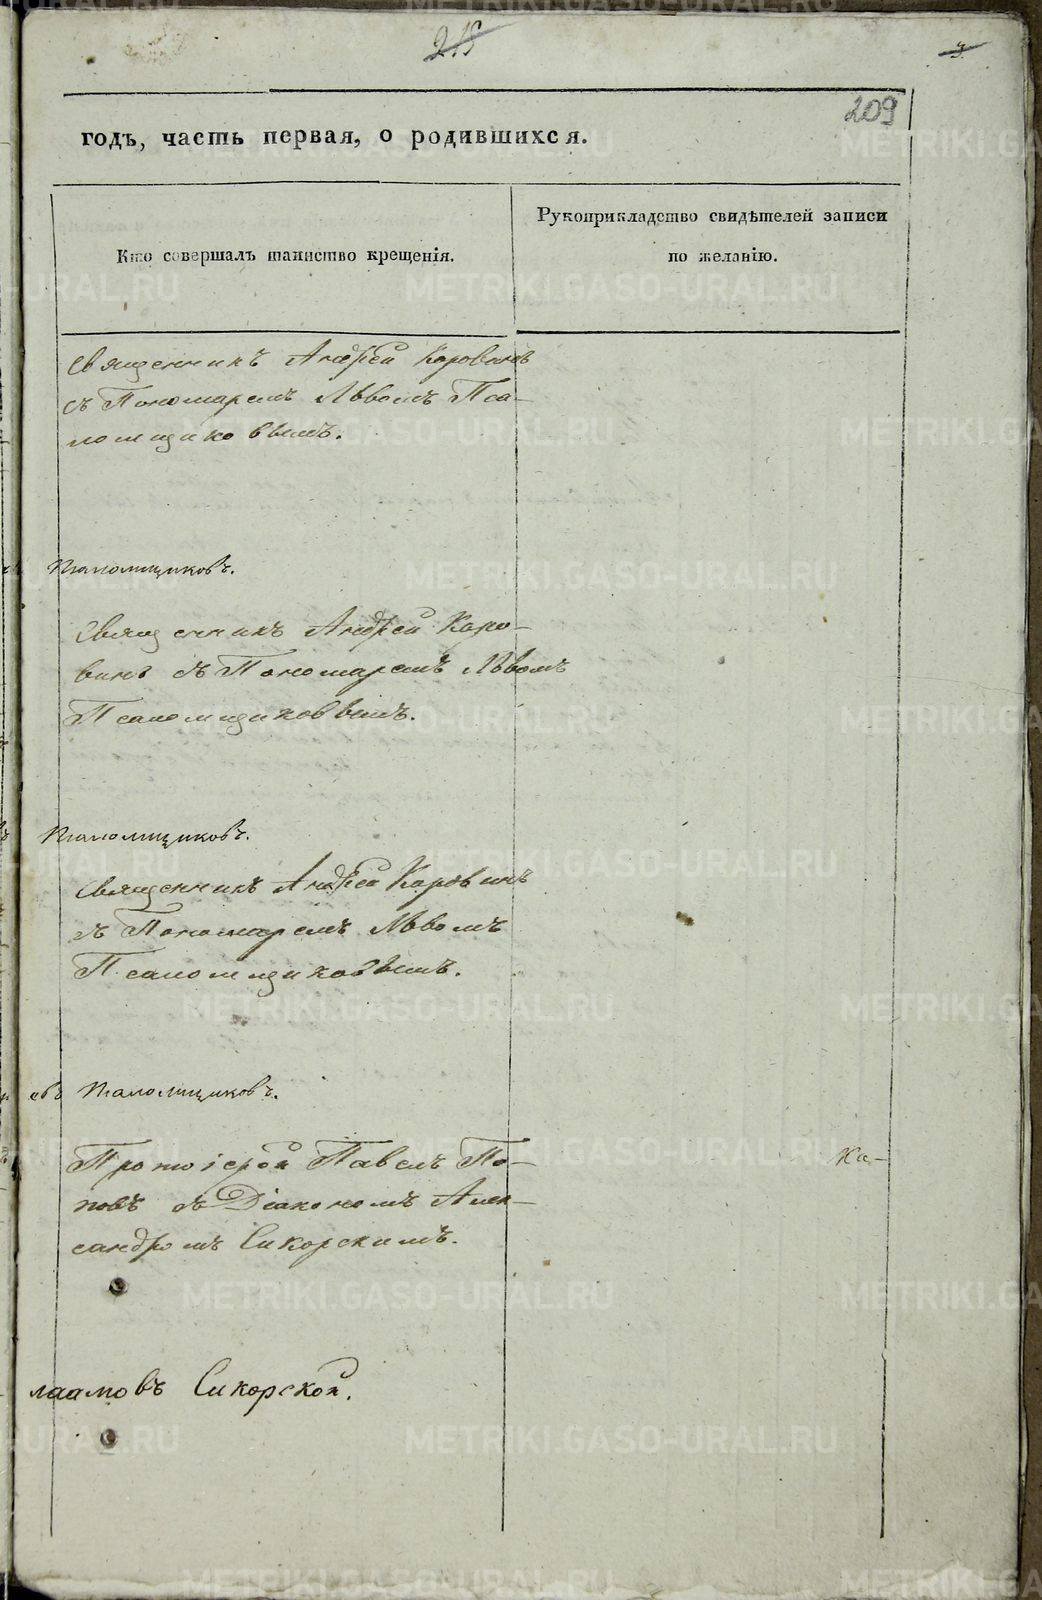 215
3
209
годъ, часть первая, о родившихся.
Кто совершалъ таинство крещенія.
Рукоприкладство свидѣтелей записи
по желанію.
Священникъ Андрей Коровинъ
съ Пономаремъ Львомъ Пса-
ломщиковымъ.
Псаломщиковъ.
Священникъ Андрей Коро-
винъ съ Пономаремъ Львомъ
Псаломщиковымъ.
Псаломщиковъ.
Священникъ Андрей Коровинъ
съ Пономаремъ Львомъ
Псаломщиковымъ.
евъ Псаломщиковъ.
Протоіерей Павелъ По-
повъ съ Діакономъ Алек-
сандромъ Сикорскимъ.
Ка-
лаамовъ Сикорской.
METRIKI.GASO-URAL.RU